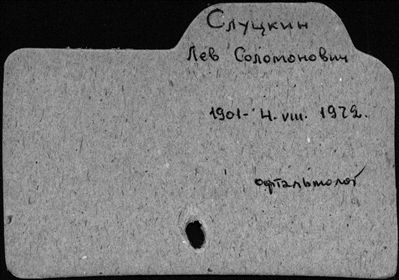 Слуцкин
Лев Соломонович
1901- 4. VIII. 1972.
офтальмолог